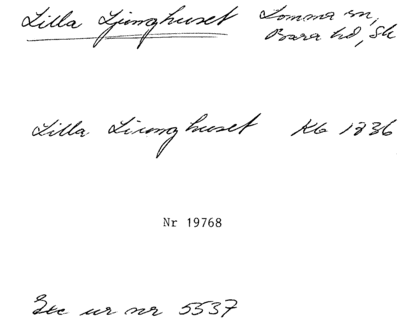 Lilla Ljunghuset Lomma sn,
Bara hd, Sk
Lilla Liunghuset Kb 1836
Nr 19768
Exc ur nr 5537